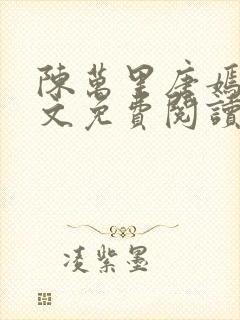 陳萬里唐嫣
文免費閱讀
凌紫墨